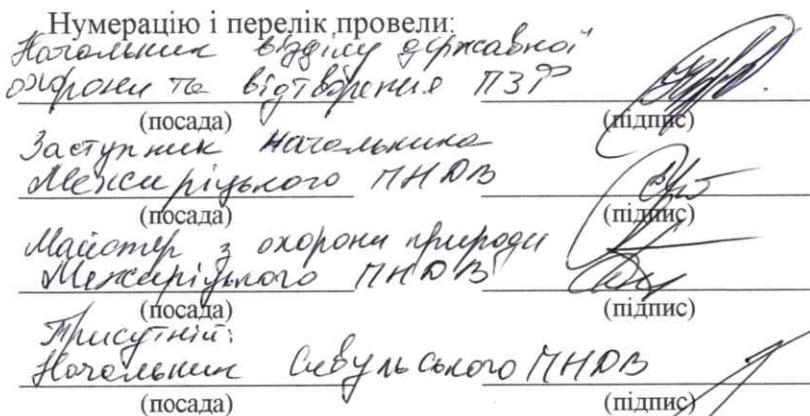 Нумерацію і перелік провели:
Начальник відділу державної
охорони та відтворення ПЗФ
(посада) (підпис)
Заступник начальника
Межиріцького ПНДВ
(посада) (підпис)
Майстер з охорони природи
Межиріцького ПНДВ
(посада) (підпис)
Присутній:
Начальник Сивульського ПНДВ
(посада) (підпис)